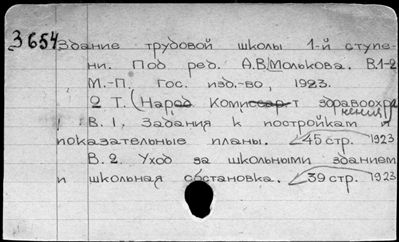 3654
Здание трудовой школы 1-й ступе-
ни. Под ред. А.В.Молькова. В.1-2
М.-П. Гос. изд.-во, 1923.
2 Т. (Народ Комиссар-т здравоохра
нения)
В. 1. Задания к постройкам и
показательные планы. 45 стр. 1923
В. 2. Уход за школьными зданием
и школьная обстановка. 39 стр. 1923